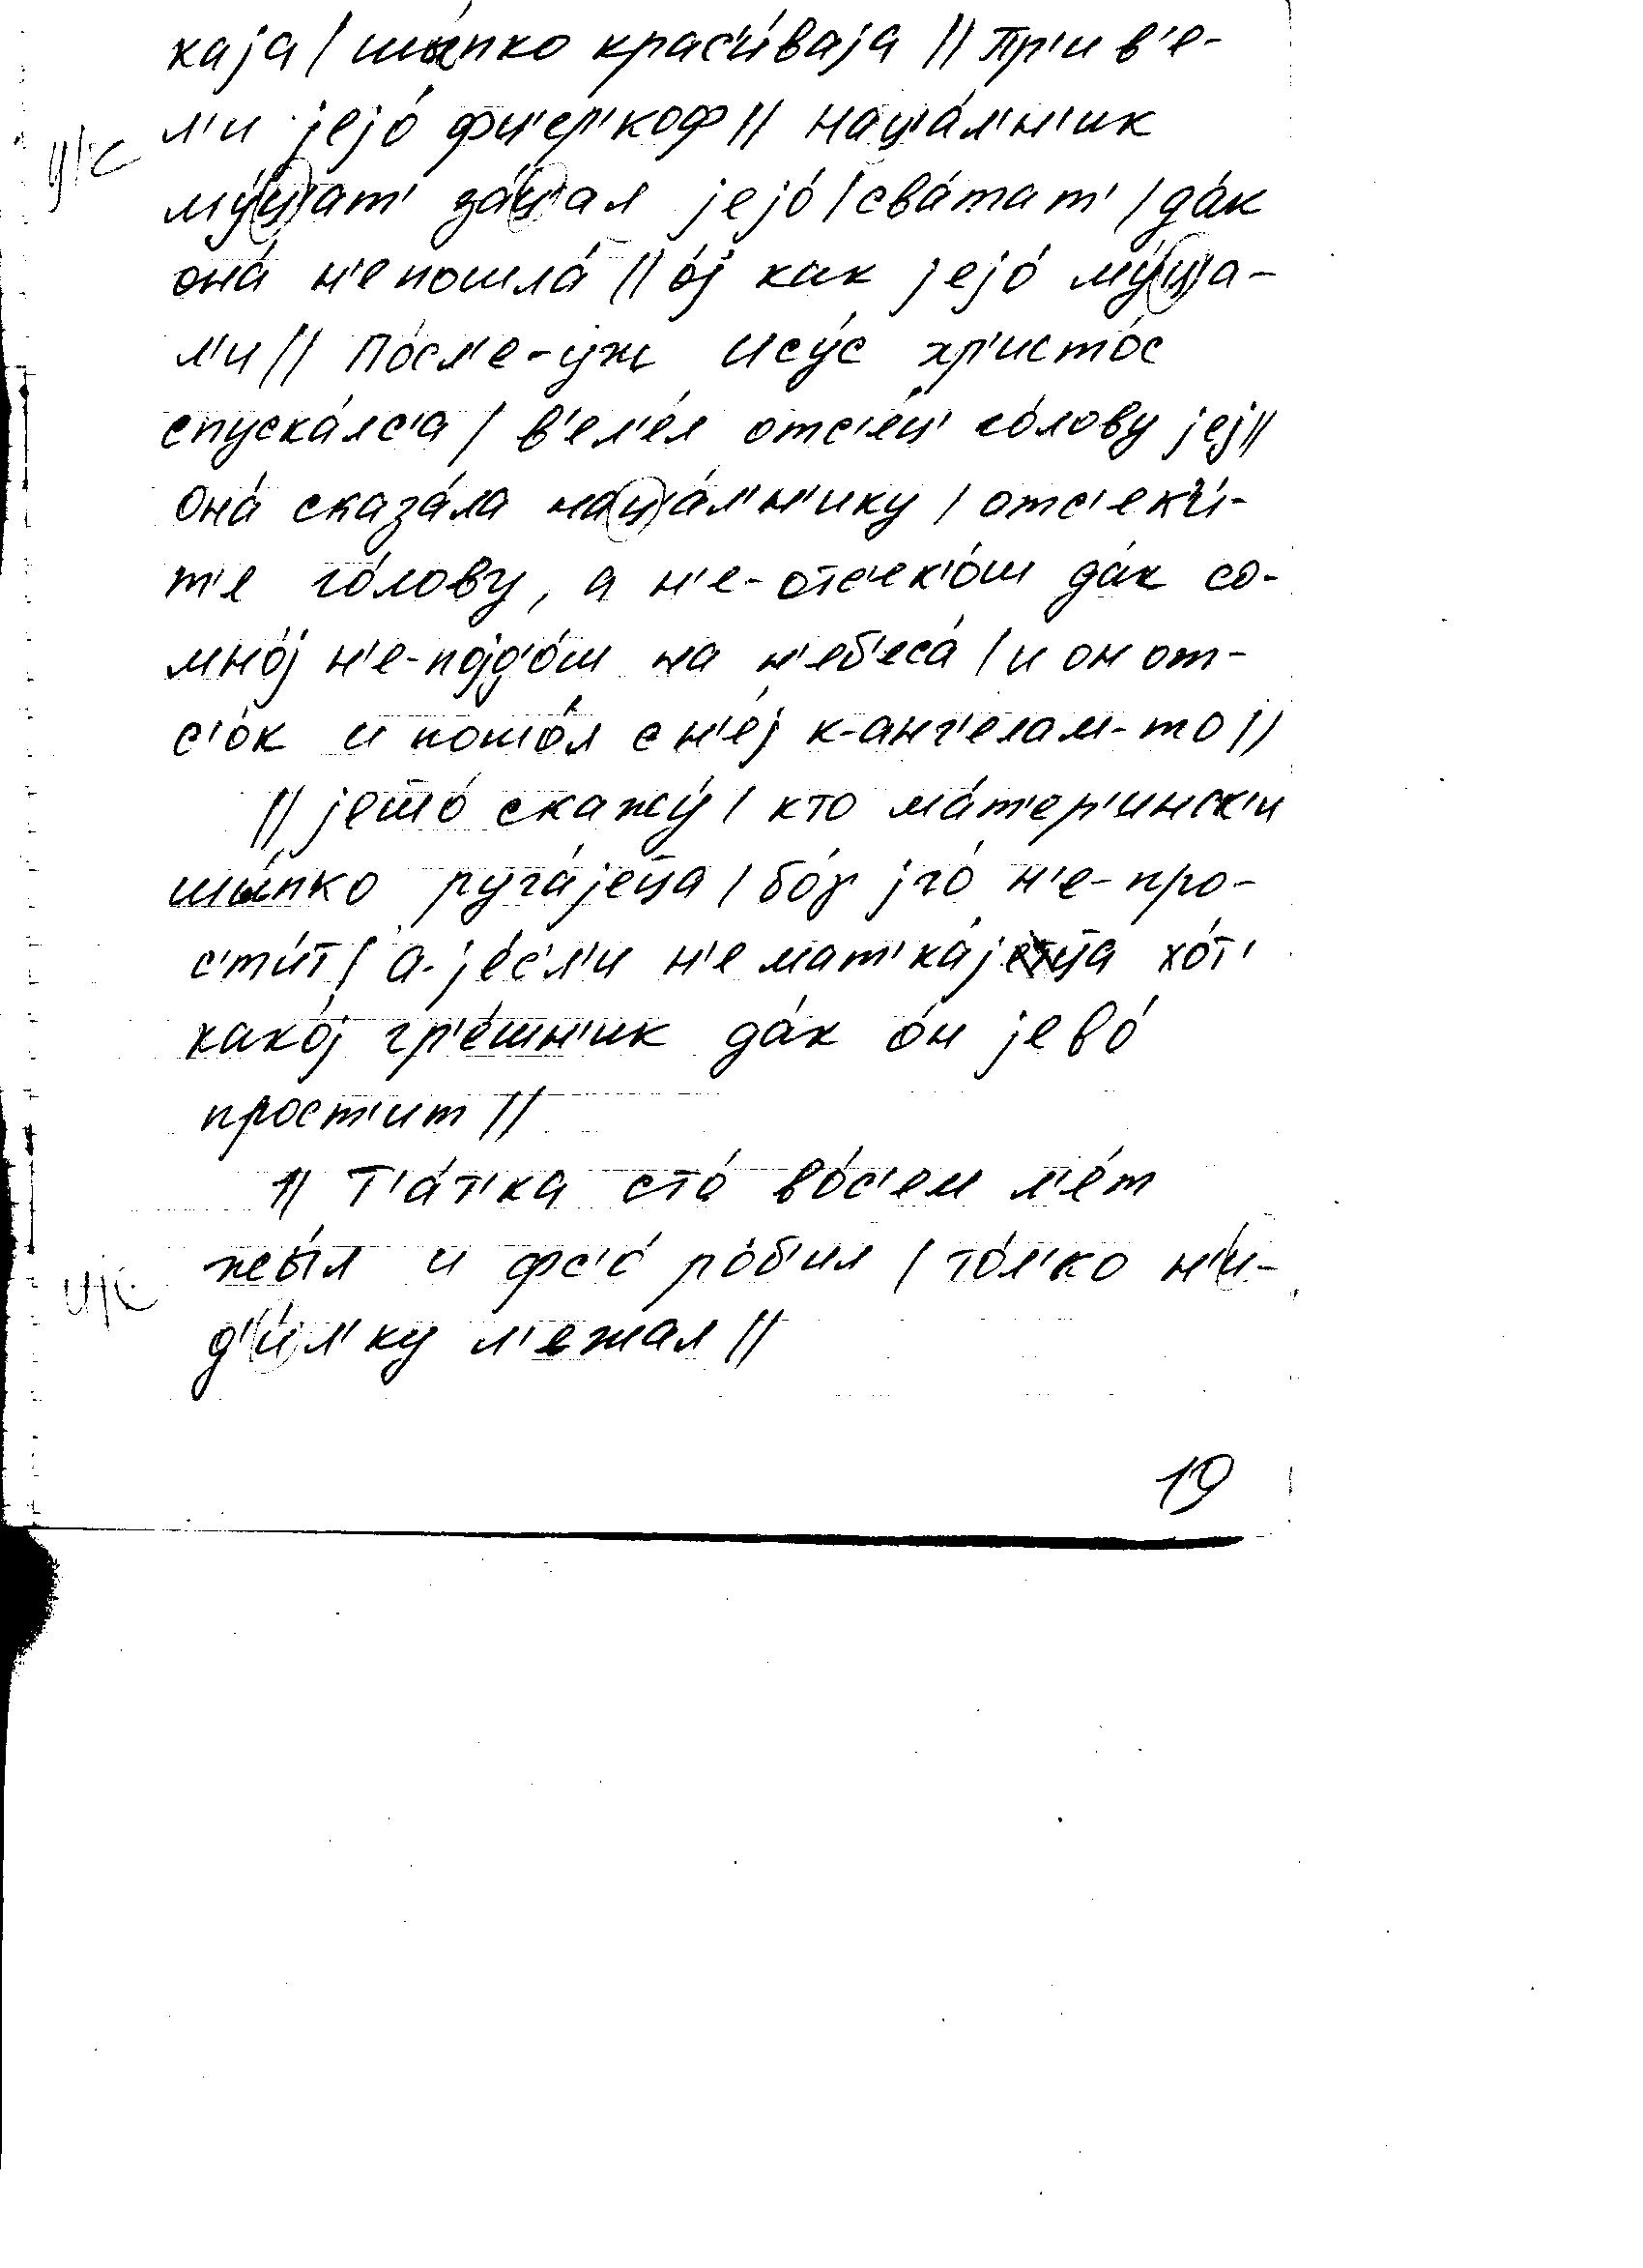 каjа / шы́пко крас'и́ваjа // Пр'ив'е-
л'и jejо́ фц'ер'коф // Нац'а́л'н'ик
му́ц'ат' за́ц'ал jejо́ / сва́тат' / да́к
она́ н'епошла́ // о́j как jejо́ му́ц'а-
л'и // По́сл'е-уж Ису́с хр'исто́с
спуска́лс'а / в'ел'е́л отс'е́ц' го́лову jej //
Она́ сказа́ла нац'а́л'н'ику / отс'ек'и́-
т'е го́лову, а н'е-отс'ек'о́ш да́к со-
мно́j н'е-поjд'о́ш на н'еб'еса́ / и он от-
с'о́к и пошо́л с н'е́j к-анг'елам-то //
// jешо́ скажу́ / кто ма́т'ер'инск'и
шы́пко руга́jеца / бо́γ jго́ н'е-про-
с'ти́т / а-jе́с'л'и н'е мат'ка́jеца хо́т'
како́j гр'е́шн'ик да́к о́н jево́
прост'ит //
// Т'а́т'ка сто́ во́с'ем л'е́т
жы́л и фс'о́ ро́б'ил / то́л'ко н'и-
д'и́л'ку л'ежал //
19